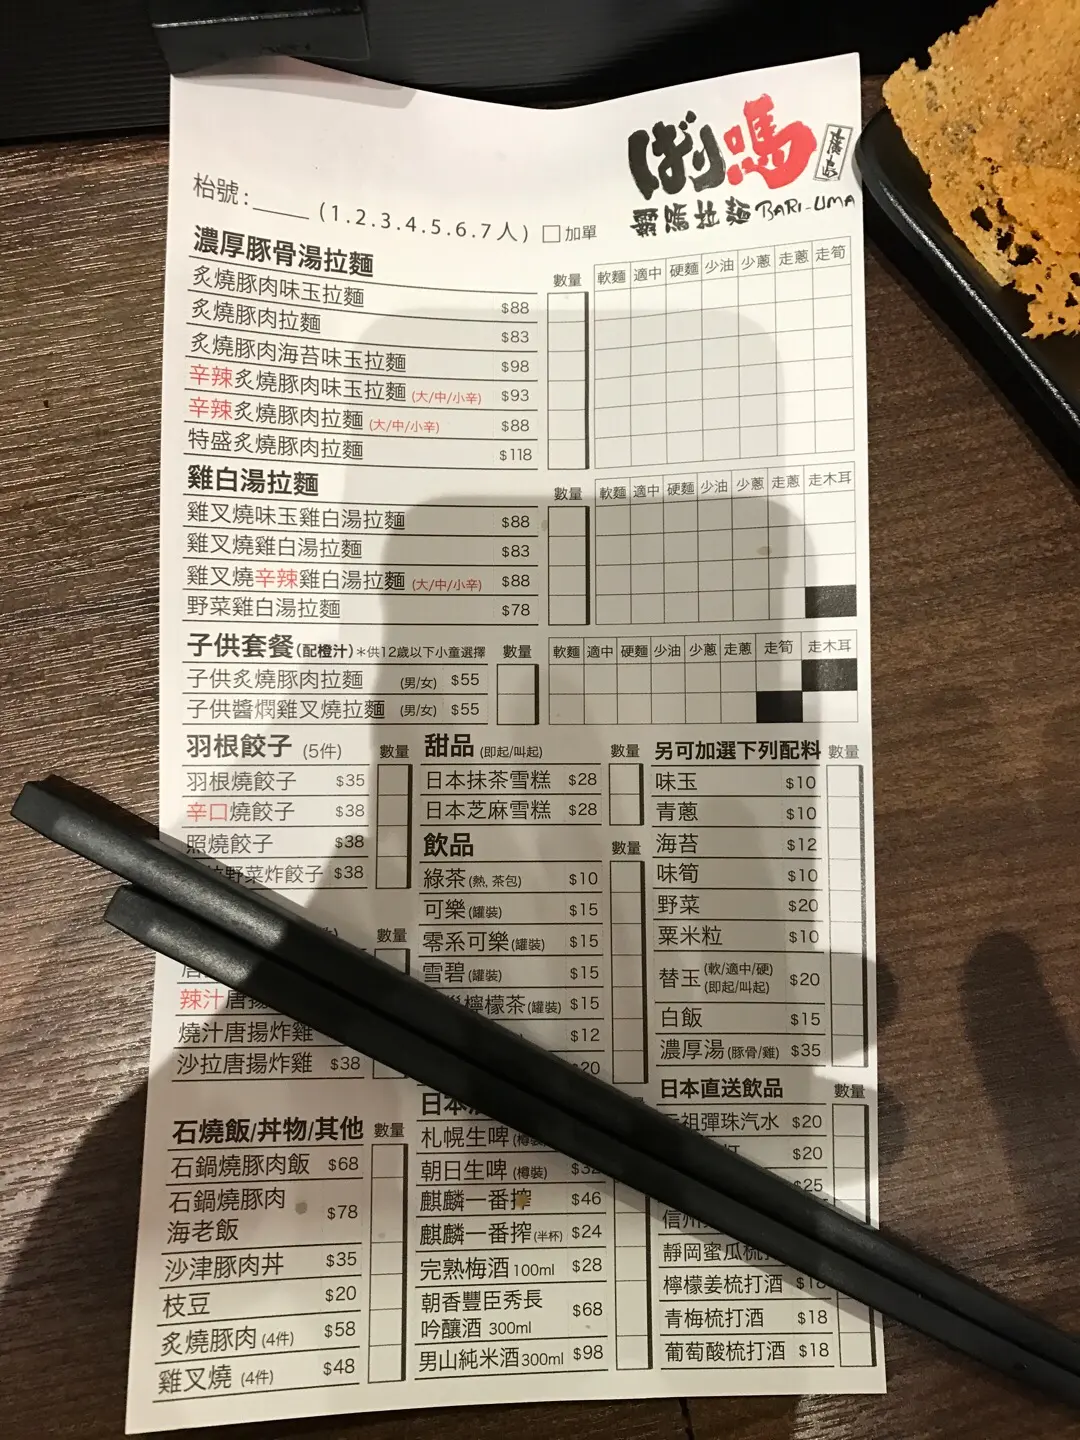 ばり嗎
廣島
霸嗎拉麵 BARI-UMA
枱號:_____ (1.2.3.4.5.6.7人) □加單
濃厚豚骨湯拉麵 數量 軟麵 適中 硬麵 少油 少蔥 走蔥 走筍
炙燒豚肉味玉拉麵 $88
炙燒豚肉拉麵 $83
炙燒豚肉海苔味玉拉麵 $98
辛辣炙燒豚肉味玉拉麵 (大/中/小辛) $93
辛辣炙燒豚肉拉麵 (大/中/小辛) $88
特盛炙燒豚肉拉麵 $118
雞白湯拉麵 數量 軟麵 適中 硬麵 少油 少蔥 走蔥 走木耳
雞叉燒味玉雞白湯拉麵 $88
雞叉燒雞白湯拉麵 $83
雞叉燒辛辣雞白湯拉麵 (大/中/小辛) $88
野菜雞白湯拉麵 $78
子供套餐(配橙汁)*供12歲以下小童選擇 數量 軟麵 適中 硬麵 少油 少蔥 走蔥 走筍 走木耳
子供炙燒豚肉拉麵 (男/女) $55
子供醬燜雞叉燒拉麵 (男/女) $55
羽根餃子 (5件) 數量
羽根燒餃子 $35
辛口燒餃子 $38
照燒餃子 $38
野菜炸餃子 $38
數量
辣汁唐揚
燒汁唐揚炸雞
沙拉唐揚炸雞 $38
石燒飯/丼物/其他 數量
石鍋燒豚肉飯 $68
石鍋燒豚肉
海老飯 $78
沙津豚肉丼 $35
枝豆 $20
炙燒豚肉 (4件) $58
雞叉燒 (4件) $48
甜品 (即起/叫起) 數量
日本抹茶雪糕 $28
日本芝麻雪糕 $28
飲品 數量
綠茶(熱, 茶包) $10
可樂(罐裝) $15
零系可樂(罐裝) $15
雪碧(罐裝) $15
檸檬茶(罐裝) $15
$12
$20
日本
札幌生啤
朝日生啤(樽裝)
麒麟一番搾 $46
麒麟一番搾(半杯) $24
完熟梅酒 100ml $28
朝香豐臣秀長
吟釀酒 300ml $68
男山純米酒300ml $98
另可加選下列配料 數量
味玉 $10
青蔥 $10
海苔 $12
味筍 $10
野菜 $20
粟米粒 $10
替玉 (軟/適中/硬) (即起/叫起) $20
白飯 $15
濃厚湯(豚骨/雞) $35
日本直送飲品 數量
祖彈珠汽水 $20
$20
$25
信州
靜岡蜜瓜梳
檸檬姜梳打酒
青梅梳打酒 $18
葡萄酸梳打酒 $18